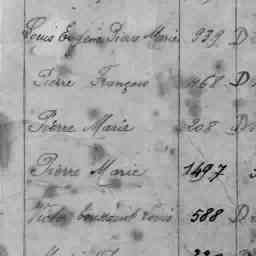 Louis Eugène Pierre Marie 939 D
Pierre François 468 D
Pierre Marie 208 D
Pierre Marie 1497
Victor Toussaint Louis 588 D